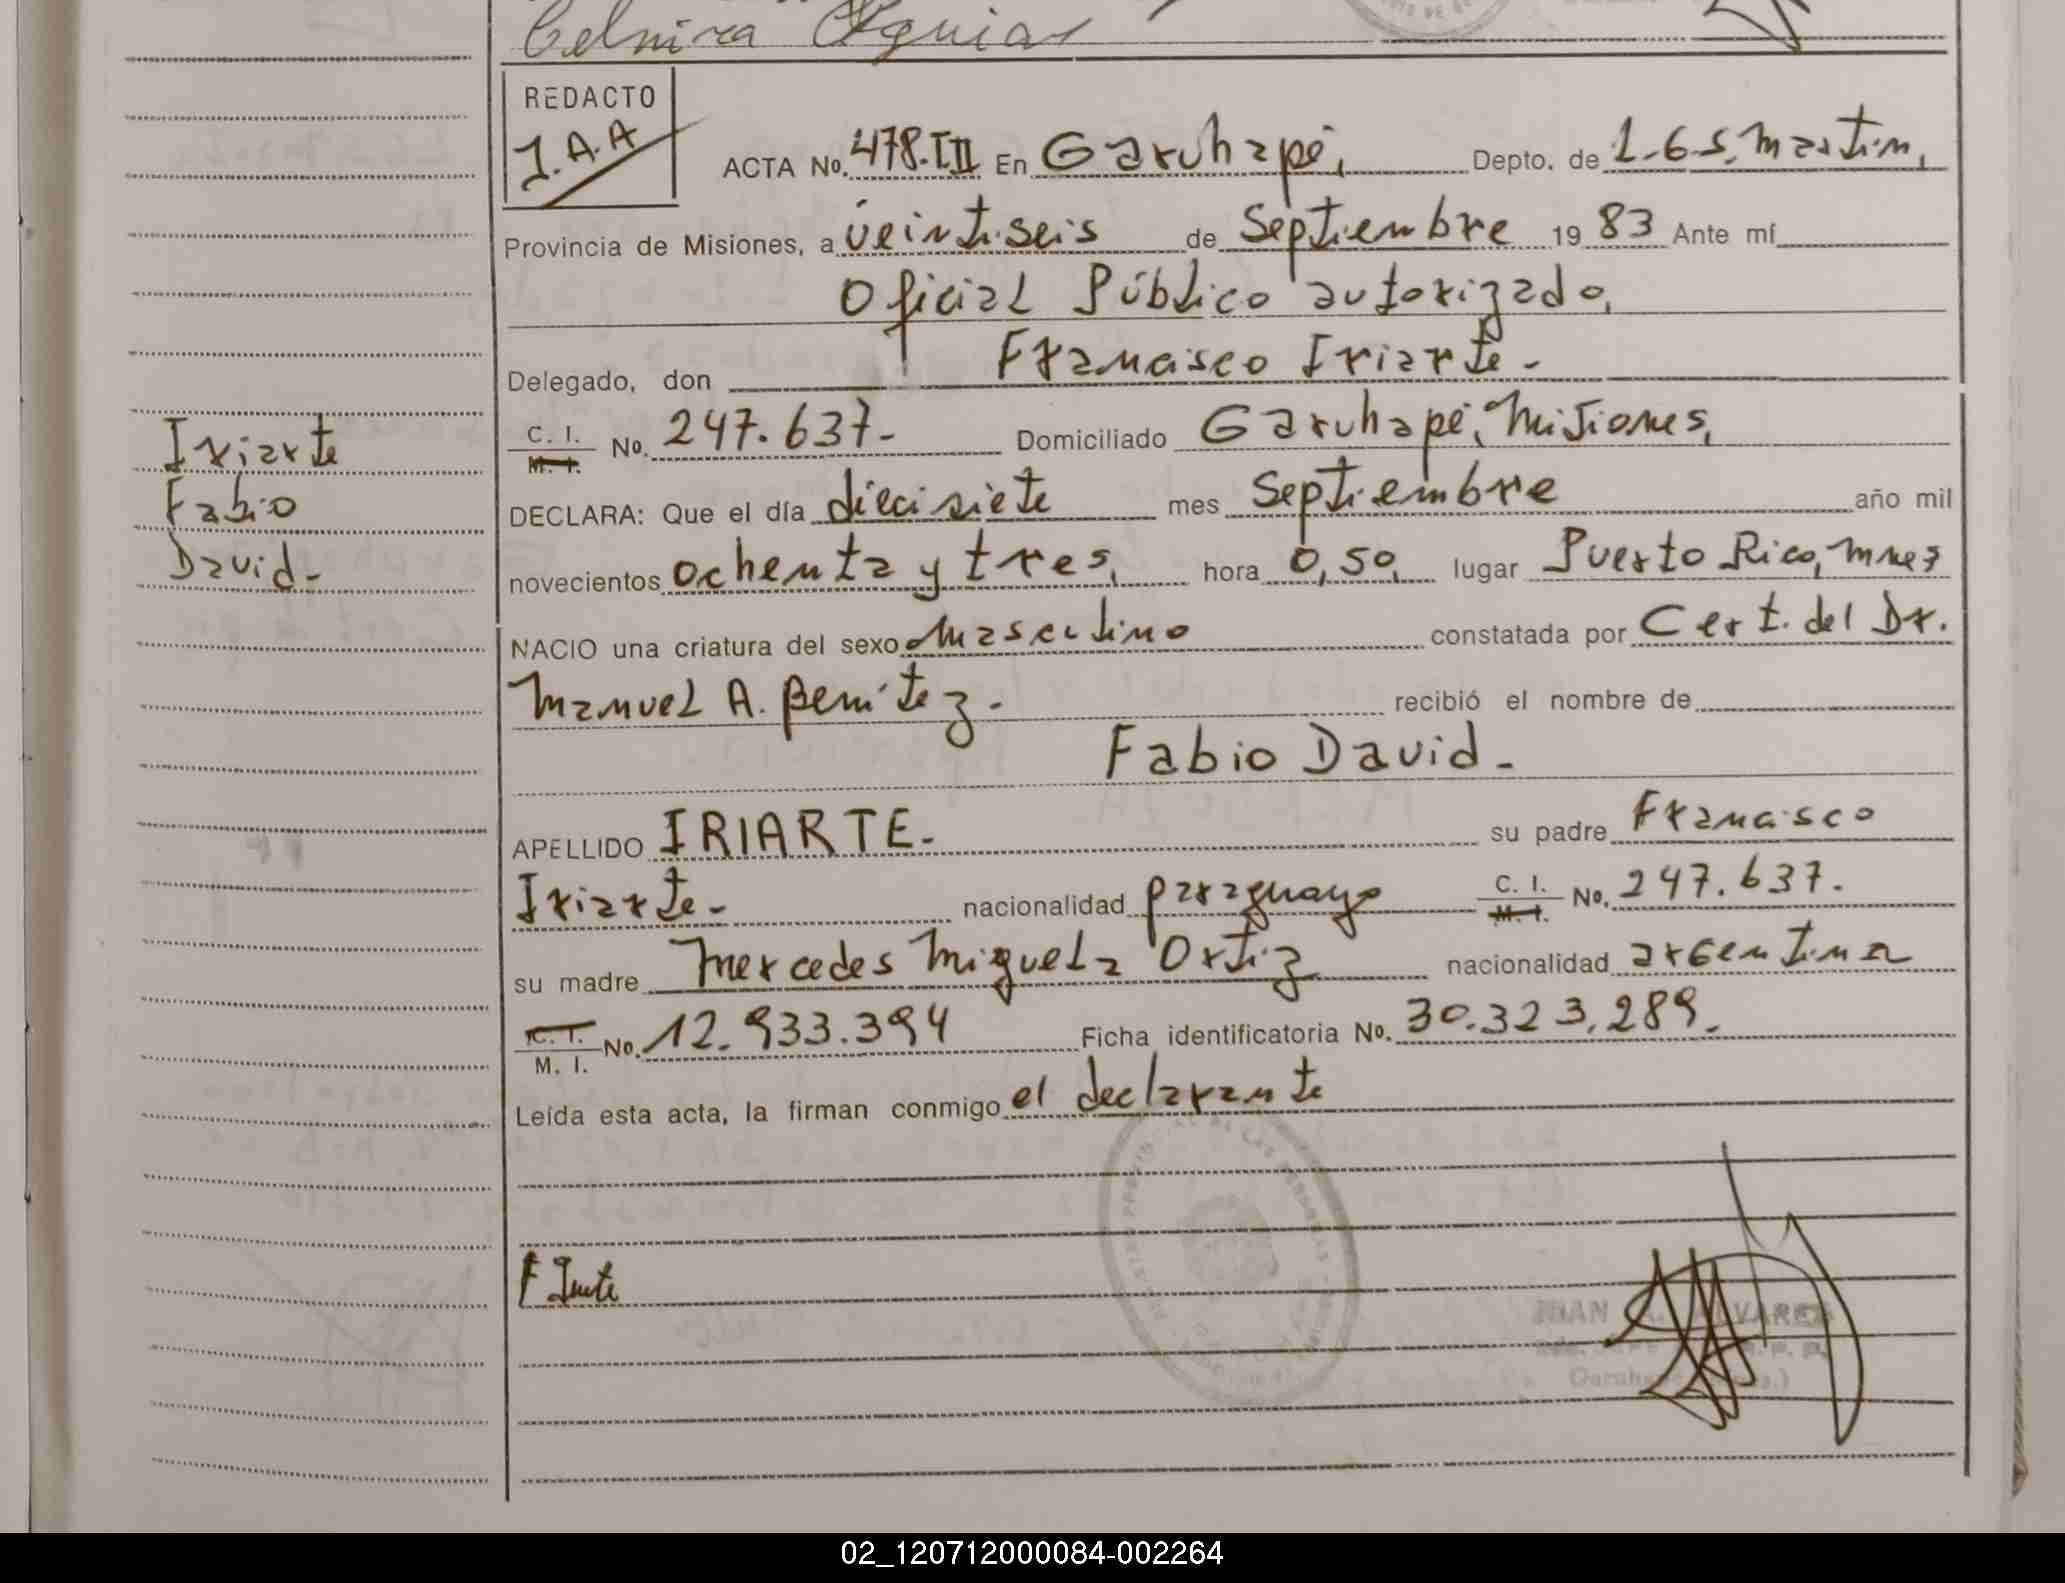 Celmira Aguiar
REDACTO
J.A.A
ACTA No. 478.TIII En Garuhapé, Depto. de L.G.S.Martin,
Provincia de Misiones, a veintiseis de Septiembre 19 83 Ante mí
Oficial Público autorizado,
Delegado, don Francisco Iriarte-
C. I. M. I. No. 247.637- Domiciliado Garuhapé, Misiones,
Iriarte
Fabio
David-
DECLARA: Que el día diecisiete mes Septiembre año mil
novecientos ochenta y tres, hora 0,50, lugar Puerto Rico, Mnes
NACIO una criatura del sexo masculino constatada por Cert. del Dr.
Manuel A. Benítez- recibió el nombre de
Fabio David-
APELLIDO IRIARTE- su padre Francisco
Iriarte- nacionalidad paraguayo C. I. M. I. No. 247.637.
su madre Mercedes Miguela Ortiz nacionalidad argentina
C. I. M. I. No. 12.933.394 Ficha identificatoria No. 30.323.289-
Leída esta acta, la firman conmigo el declarante
F Iriarte
JUAN A. ALVAREZ